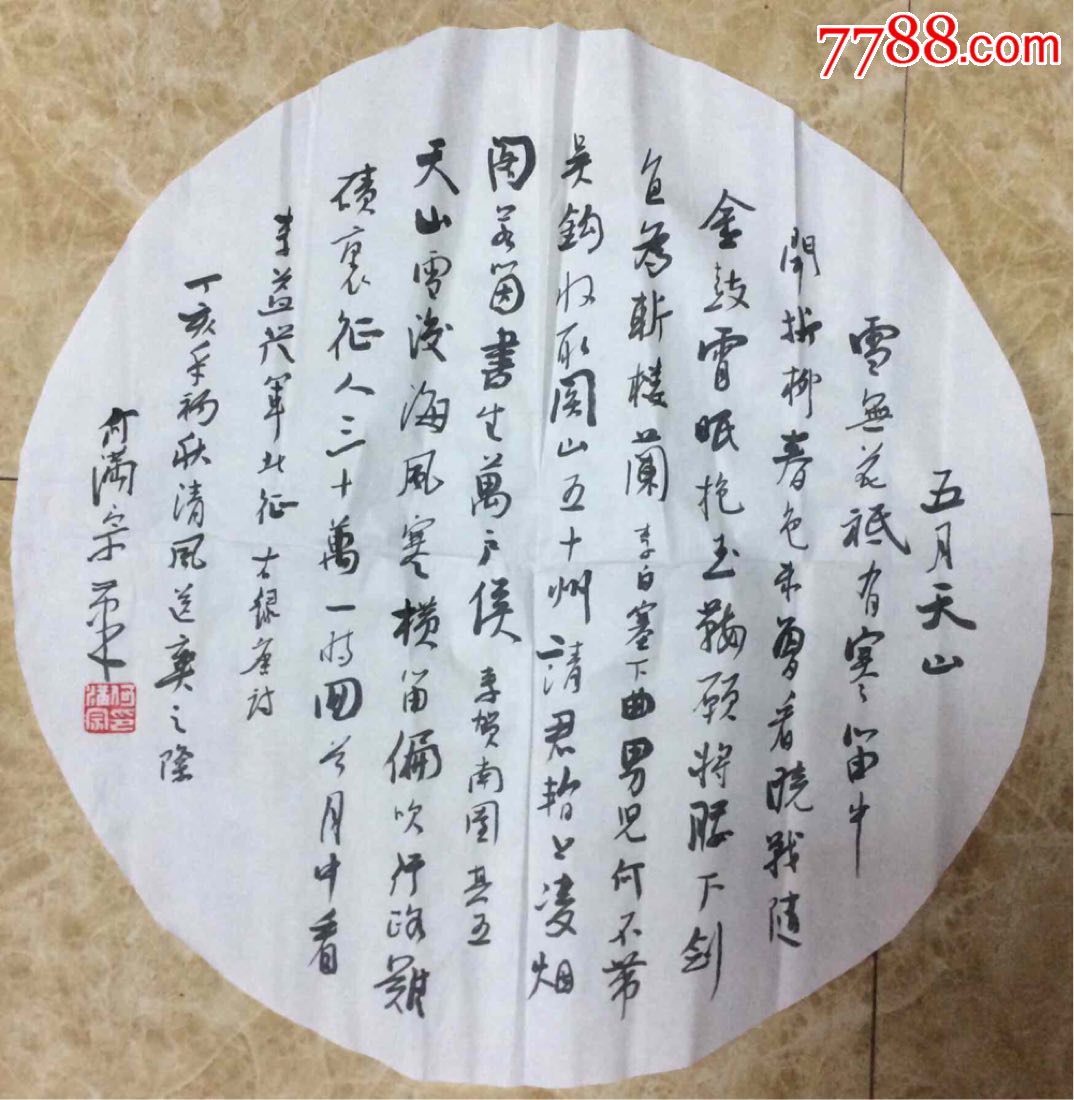 7788.com
五月天山
雪無花祇有寒笛中
聞折柳春色未曾看曉戰隨
金鼓宵眠抱玉鞍願將腰下劍
直為斬楼蘭 李白塞下曲 男兒何不帶
吳鈎收取關山五十州請君暫上凌烟
閣若箇書生萬户侯 李賀南園其五
天山雪後海風寒橫笛偏吹行路難
磧裏征人三十萬一時回首月中看
李益從軍北征 右録唐詩
丁亥年初秋清風送爽之際
何滿宗